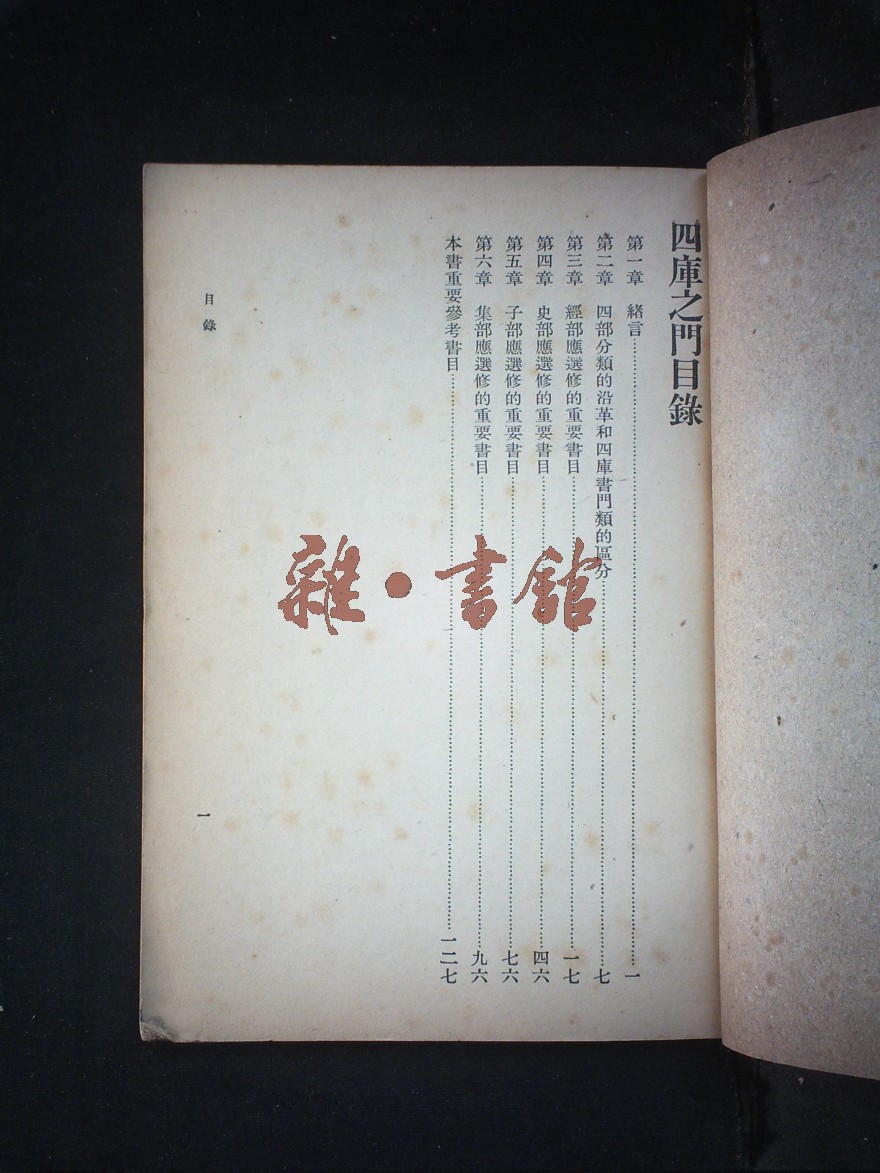 四庫之門目錄
第一章 緒言……一
第二章 四部分類的沿革和四庫書門類的區分……七
第三章 經部應選修的重要書目……一七
第四章 史部應選修的重要書目……四六
第五章 子部應選修的重要書目……七六
第六章 集部應選修的重要書目……九六
本書重要參考書目……一二七
目錄
一
雜·書館